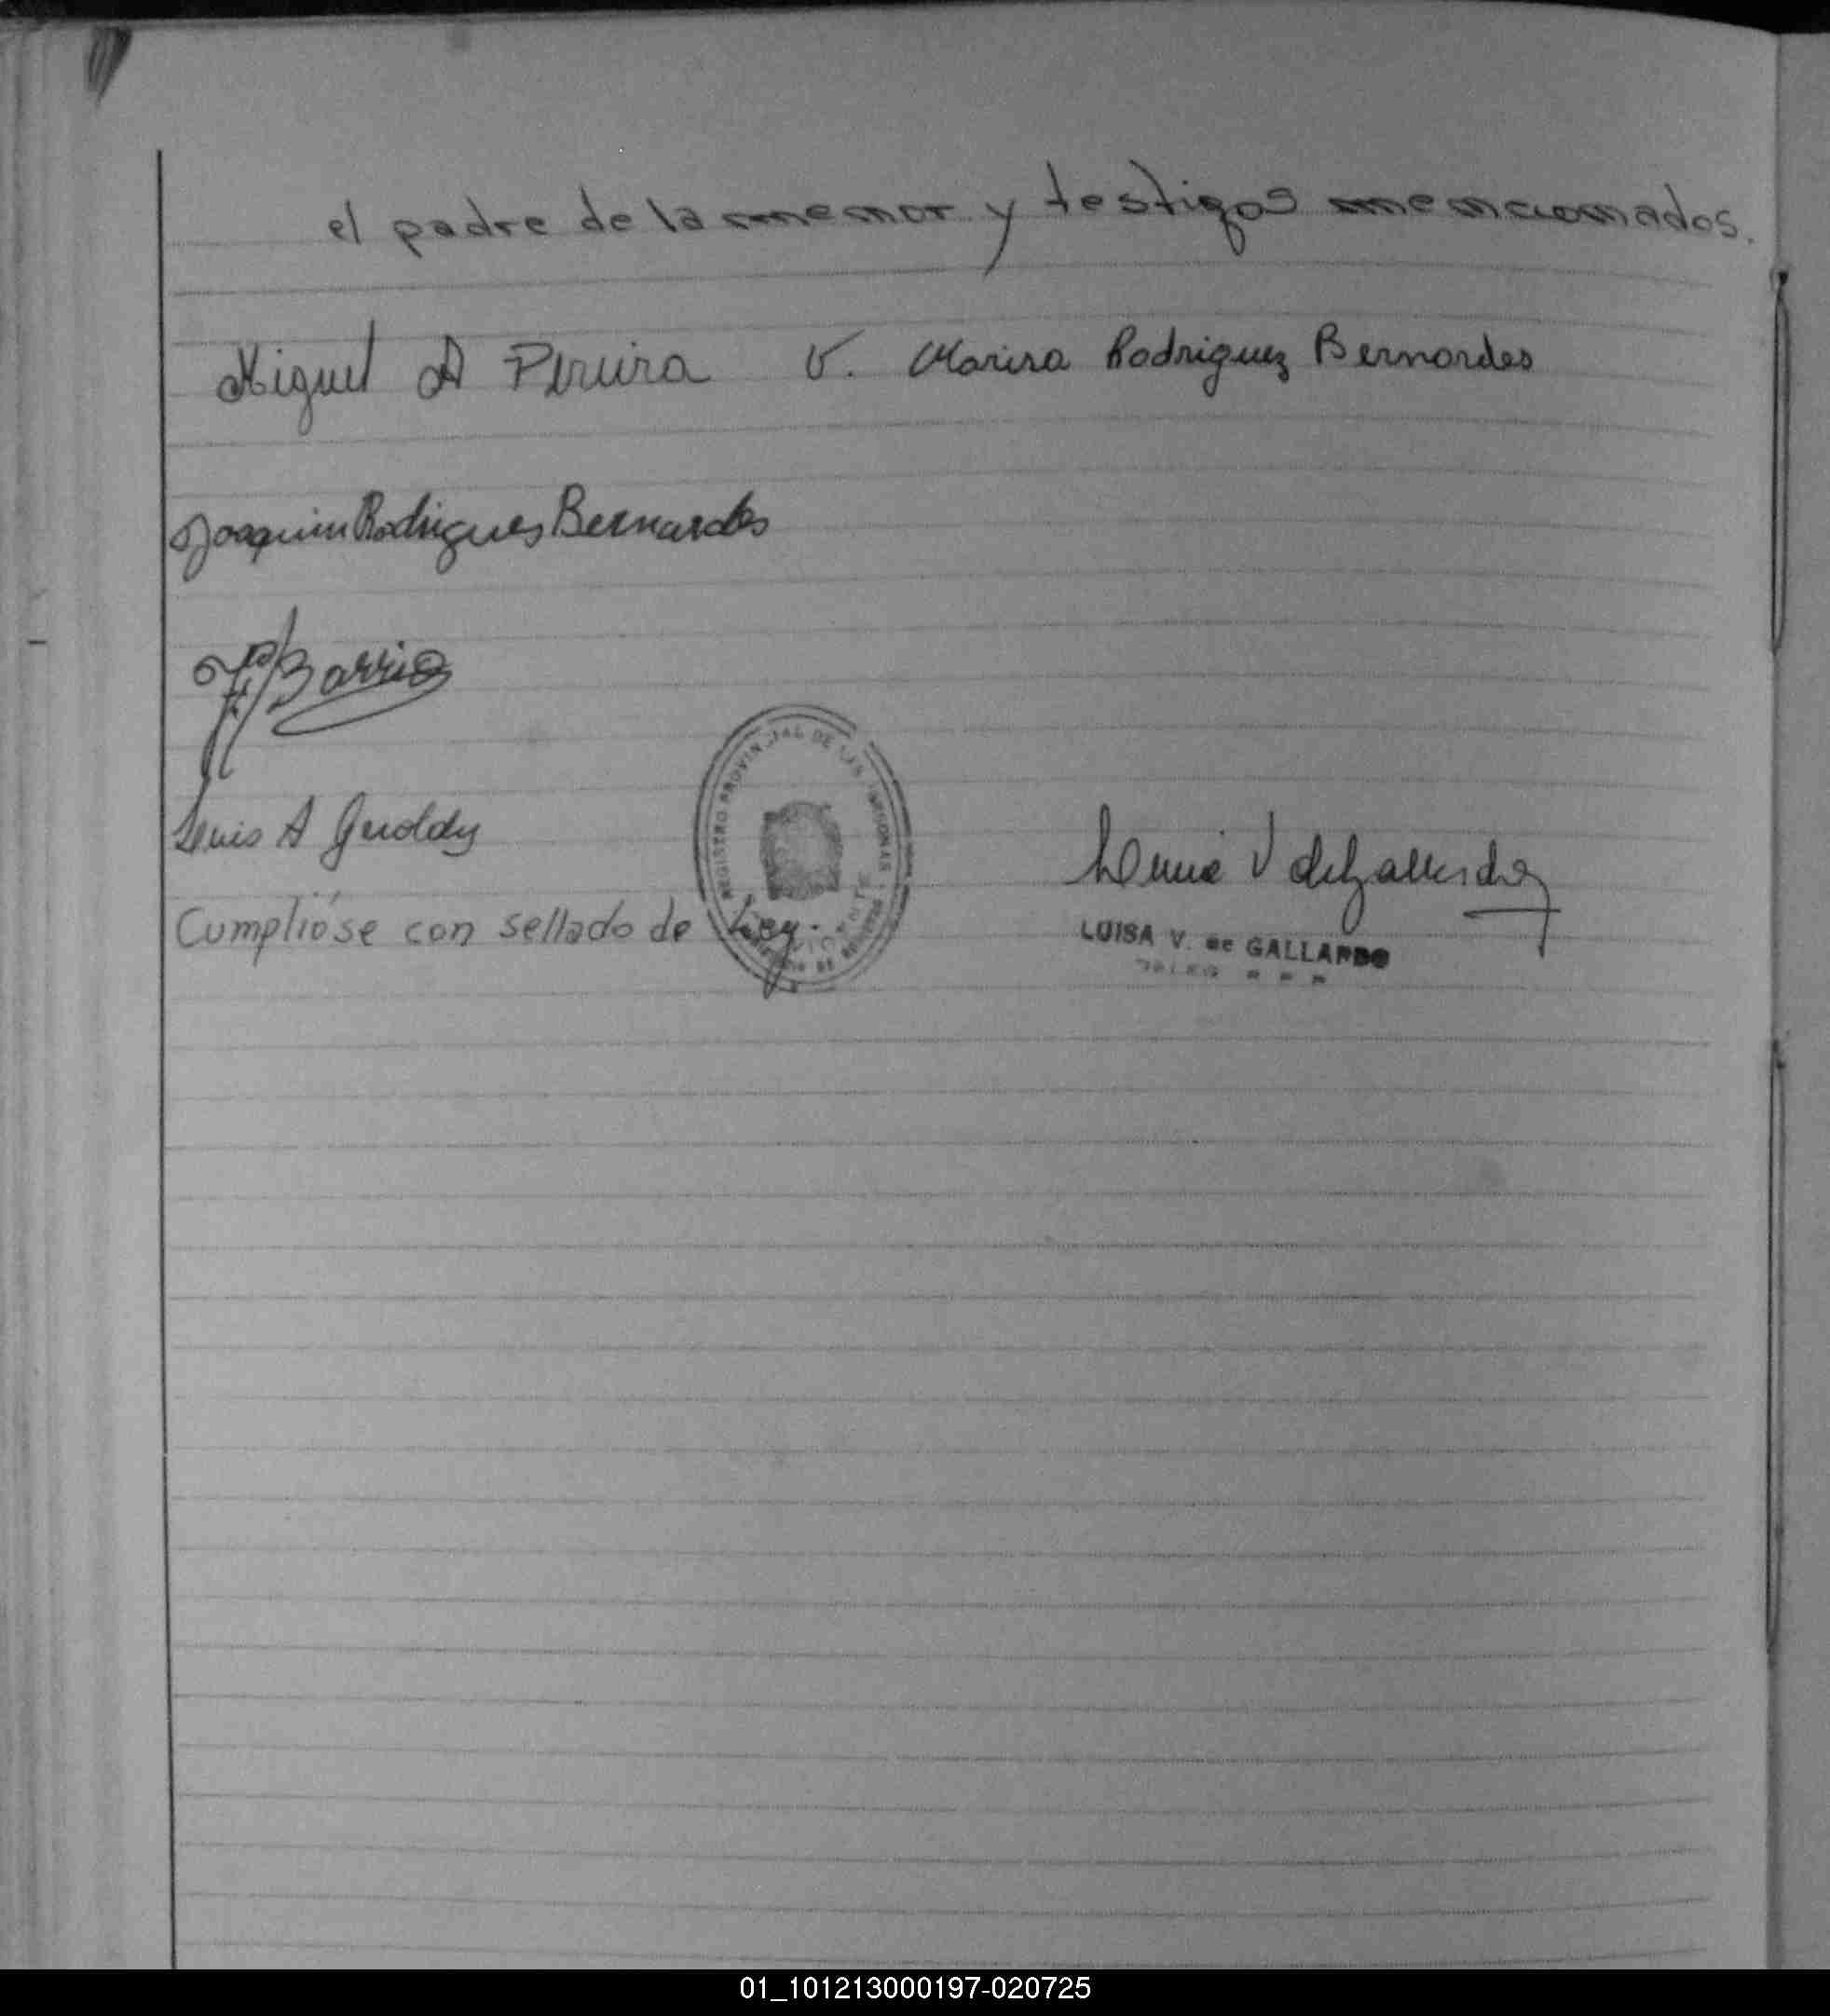 el padre de la menor y testigos mencionados.
Miguel A Pereira V. Marisa Rodriguez Bernardes
Joaquim Rodrigues Bernardes
Barrio
Luis A
Cumplióse con sellado de Ley.
REGISTRO PROVINCIAL DE LAS PERSONAS
LUISA V. de GALLARDO
01_101213000197-020725